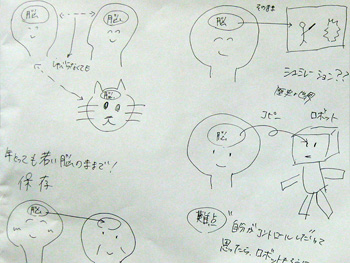 脳
脳
しゃべらなくても
脳
年とっても若い脳のままで!
保存
脳
脳
そのまま
シュミレーション??
脳
コピー
ロボット
難点
自分がコントロールしたいって
思ったら、ロボットも